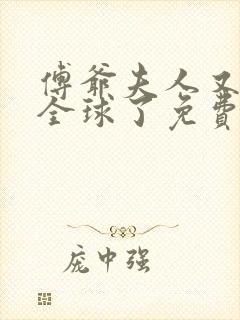 傅爷夫人又
全球了免费
庞中强